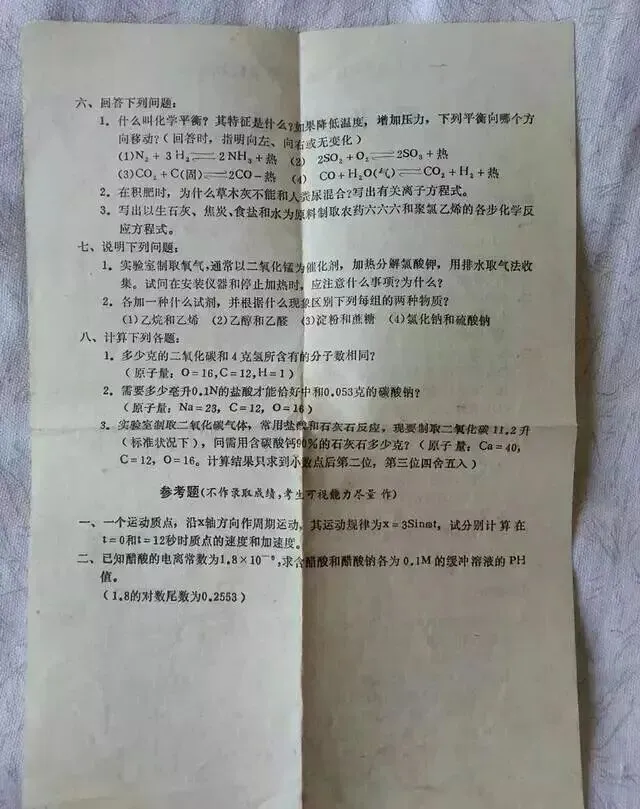 六、回答下列问题：
1．什么叫化学平衡？其特征是什么？如果降低温度，增加压力，下列平衡向哪个方
向移动？（回答时，指明向左、向右或无变化）
(1)N₂＋3H₂⇌2NH₃＋热 (2) 2SO₂＋O₂⇌2SO₃＋热
(3)CO₂＋C(固)⇌2CO－热 (4) CO＋H₂O(气)⇌CO₂＋H₂＋热
2．在积肥时，为什么草木灰不能和人粪尿混合？写出有关离子方程式。
3．写出以生石灰、焦炭、食盐和水为原料制取农药六六六和聚氯乙烯的各步化学反
应方程式。
七、说明下列问题：
1．实验室制取氧气，通常以二氧化锰为催化剂，加热分解氯酸钾，用排水取气法收
集。试问在安装仪器和停止加热时，应注意什么事项？为什么？
2．各加一种什么试剂，并根据什么现象区别下列每组的两种物质？
(1)乙烷和乙烯 (2)乙醇和乙醛 (3)淀粉和蔗糖 (4)氯化钠和硫酸钠
八、计算下列各题：
1．多少克的二氧化碳和4克氢所含有的分子数相同？
（原子量：O＝16，C＝12，H＝1）
2．需要多少毫升0.1N的盐酸才能恰好中和0.053克的碳酸钠？
（原子量：Na＝23，C＝12，O＝16）
3．实验室制取二氧化碳气体，常用盐酸和石灰石反应，现要制取二氧化碳11.2升
（标准状况下），问需用含碳酸钙90％的石灰石多少克？（原子量：Ca＝40，
C＝12，O＝16。计算结果只求到小数点后第二位，第三位四舍五入）
参考题（不作录取成绩，考生可视能力尽量作）
一、一个运动质点，沿x轴方向作周期运动，其运动规律为x＝3Sinωt，试分别计算在
t＝0和t＝12秒时质点的速度和加速度。
二、已知醋酸的电离常数为1.8×10⁻⁵，求含醋酸和醋酸钠各为0.1M的缓冲溶液的PH
值。
（1.8的对数尾数为0.2553）